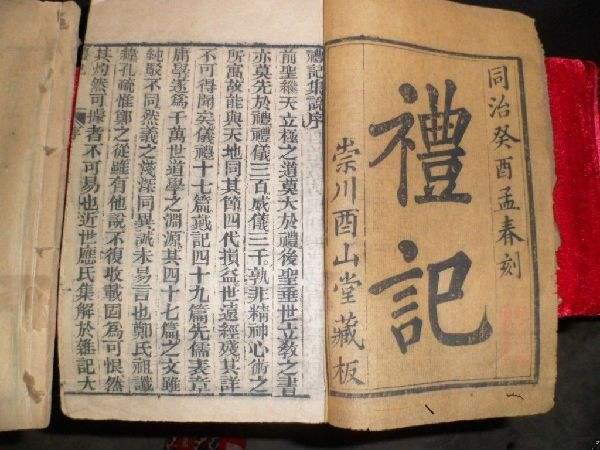 同治癸酉孟春刻
禮記
崇川酉山堂藏板
禮記集說序
前聖繼天立極之道莫大於禮後聖垂世立教之書
亦莫先於禮禮儀三百威儀三千孰非精神心術之
所寓故能與天地同其節四代損益世遠經殘其詳
不可得聞矣儀禮十七篇戴記四十九篇先儒表章
庸學遂爲千萬世道學之淵源其四十七篇之文雖
純駁不同然義之淺深同異誠未易言也鄭氏祖讖
緯孔疏惟鄭之從雖有他說不復收載固爲可恨然
其灼然可據者不可易也近世應氏集解於雜記大